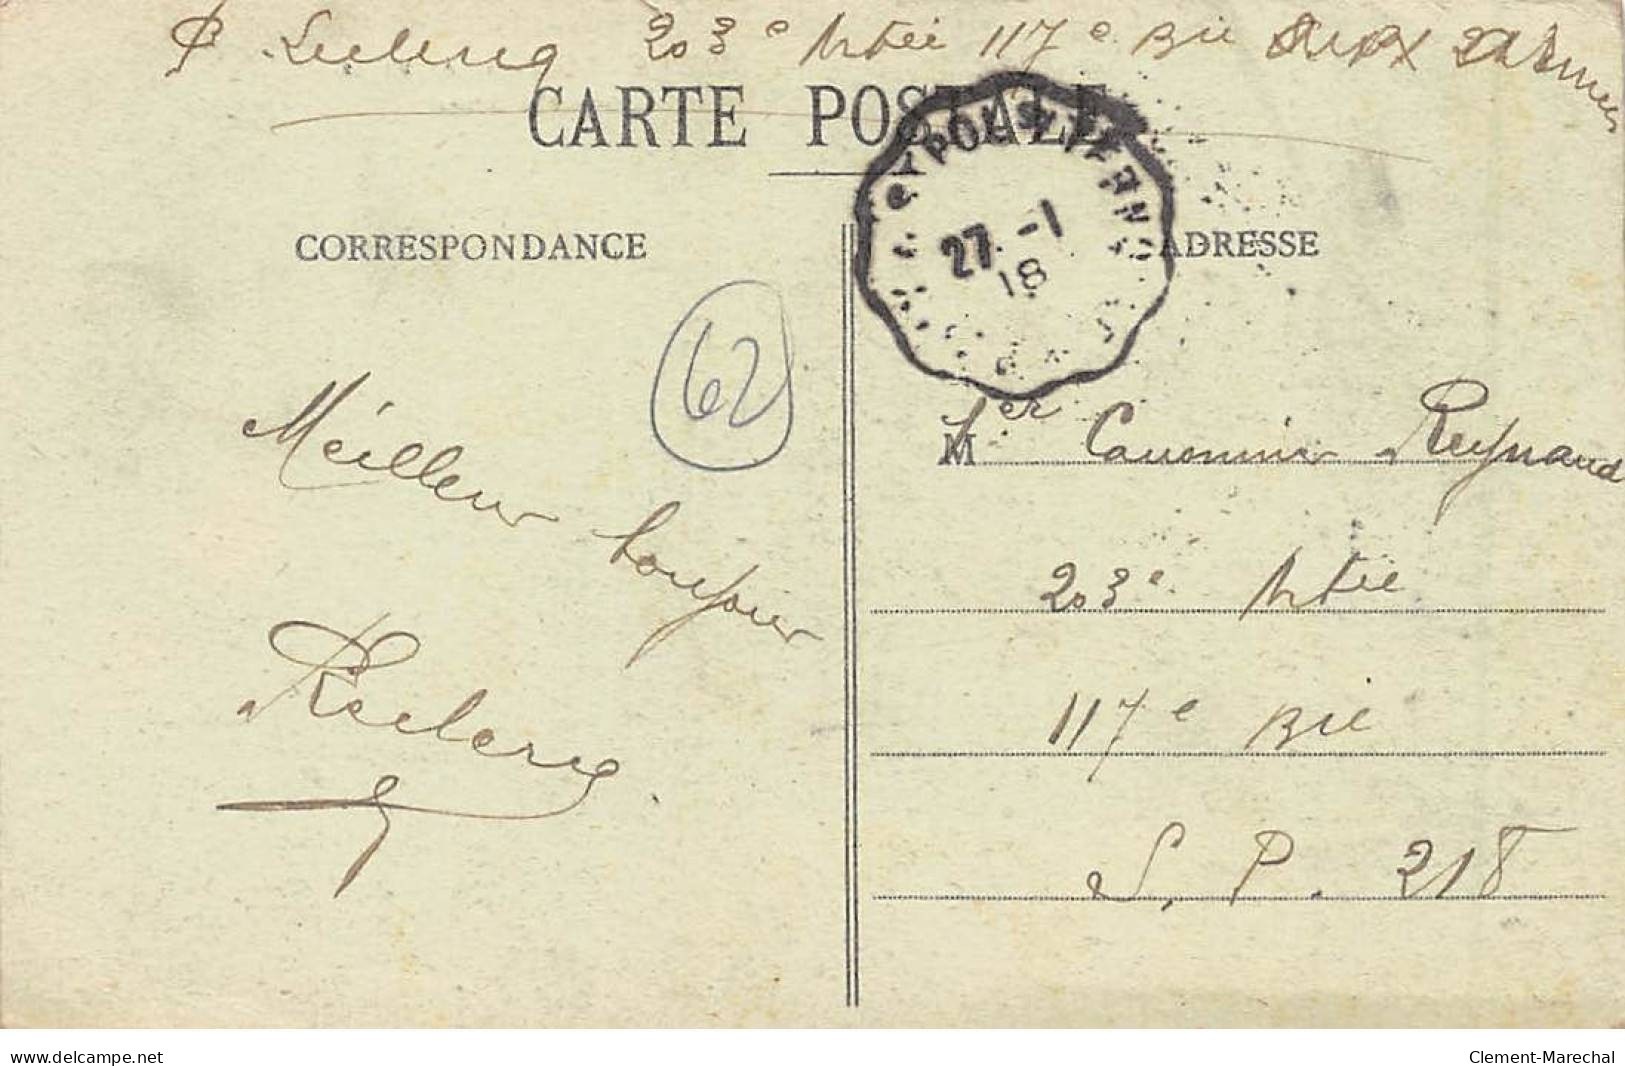 P Leclercq 203e Artie 117e Bie
CARTE POSTALE
27 -1
18
CORRESPONDANCE
ADRESSE
62
Meilleur bonjour
PLeclercq
M 1er Canonnier Reynaud
203e Artie
117e Bie
S. P. 218
delcampe.net
Clement-Marechal